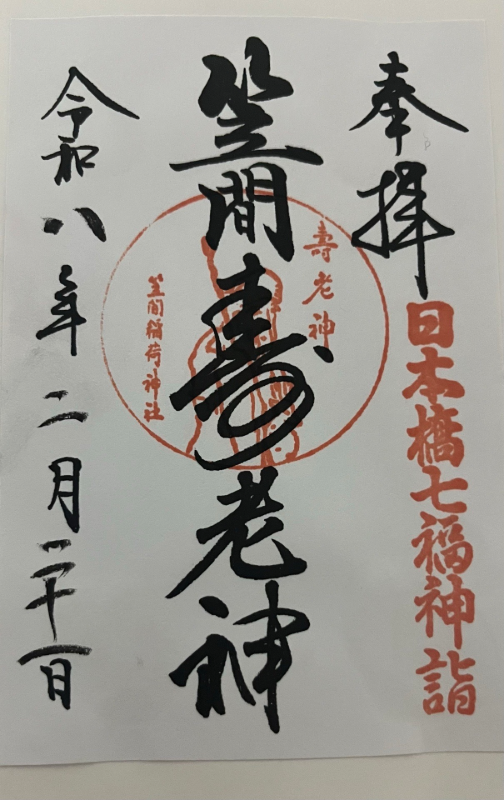 奉拝
日本橋七福神詣
笠間寿老神
壽老神
笠間稲荷神社
令和八年二月二十一日